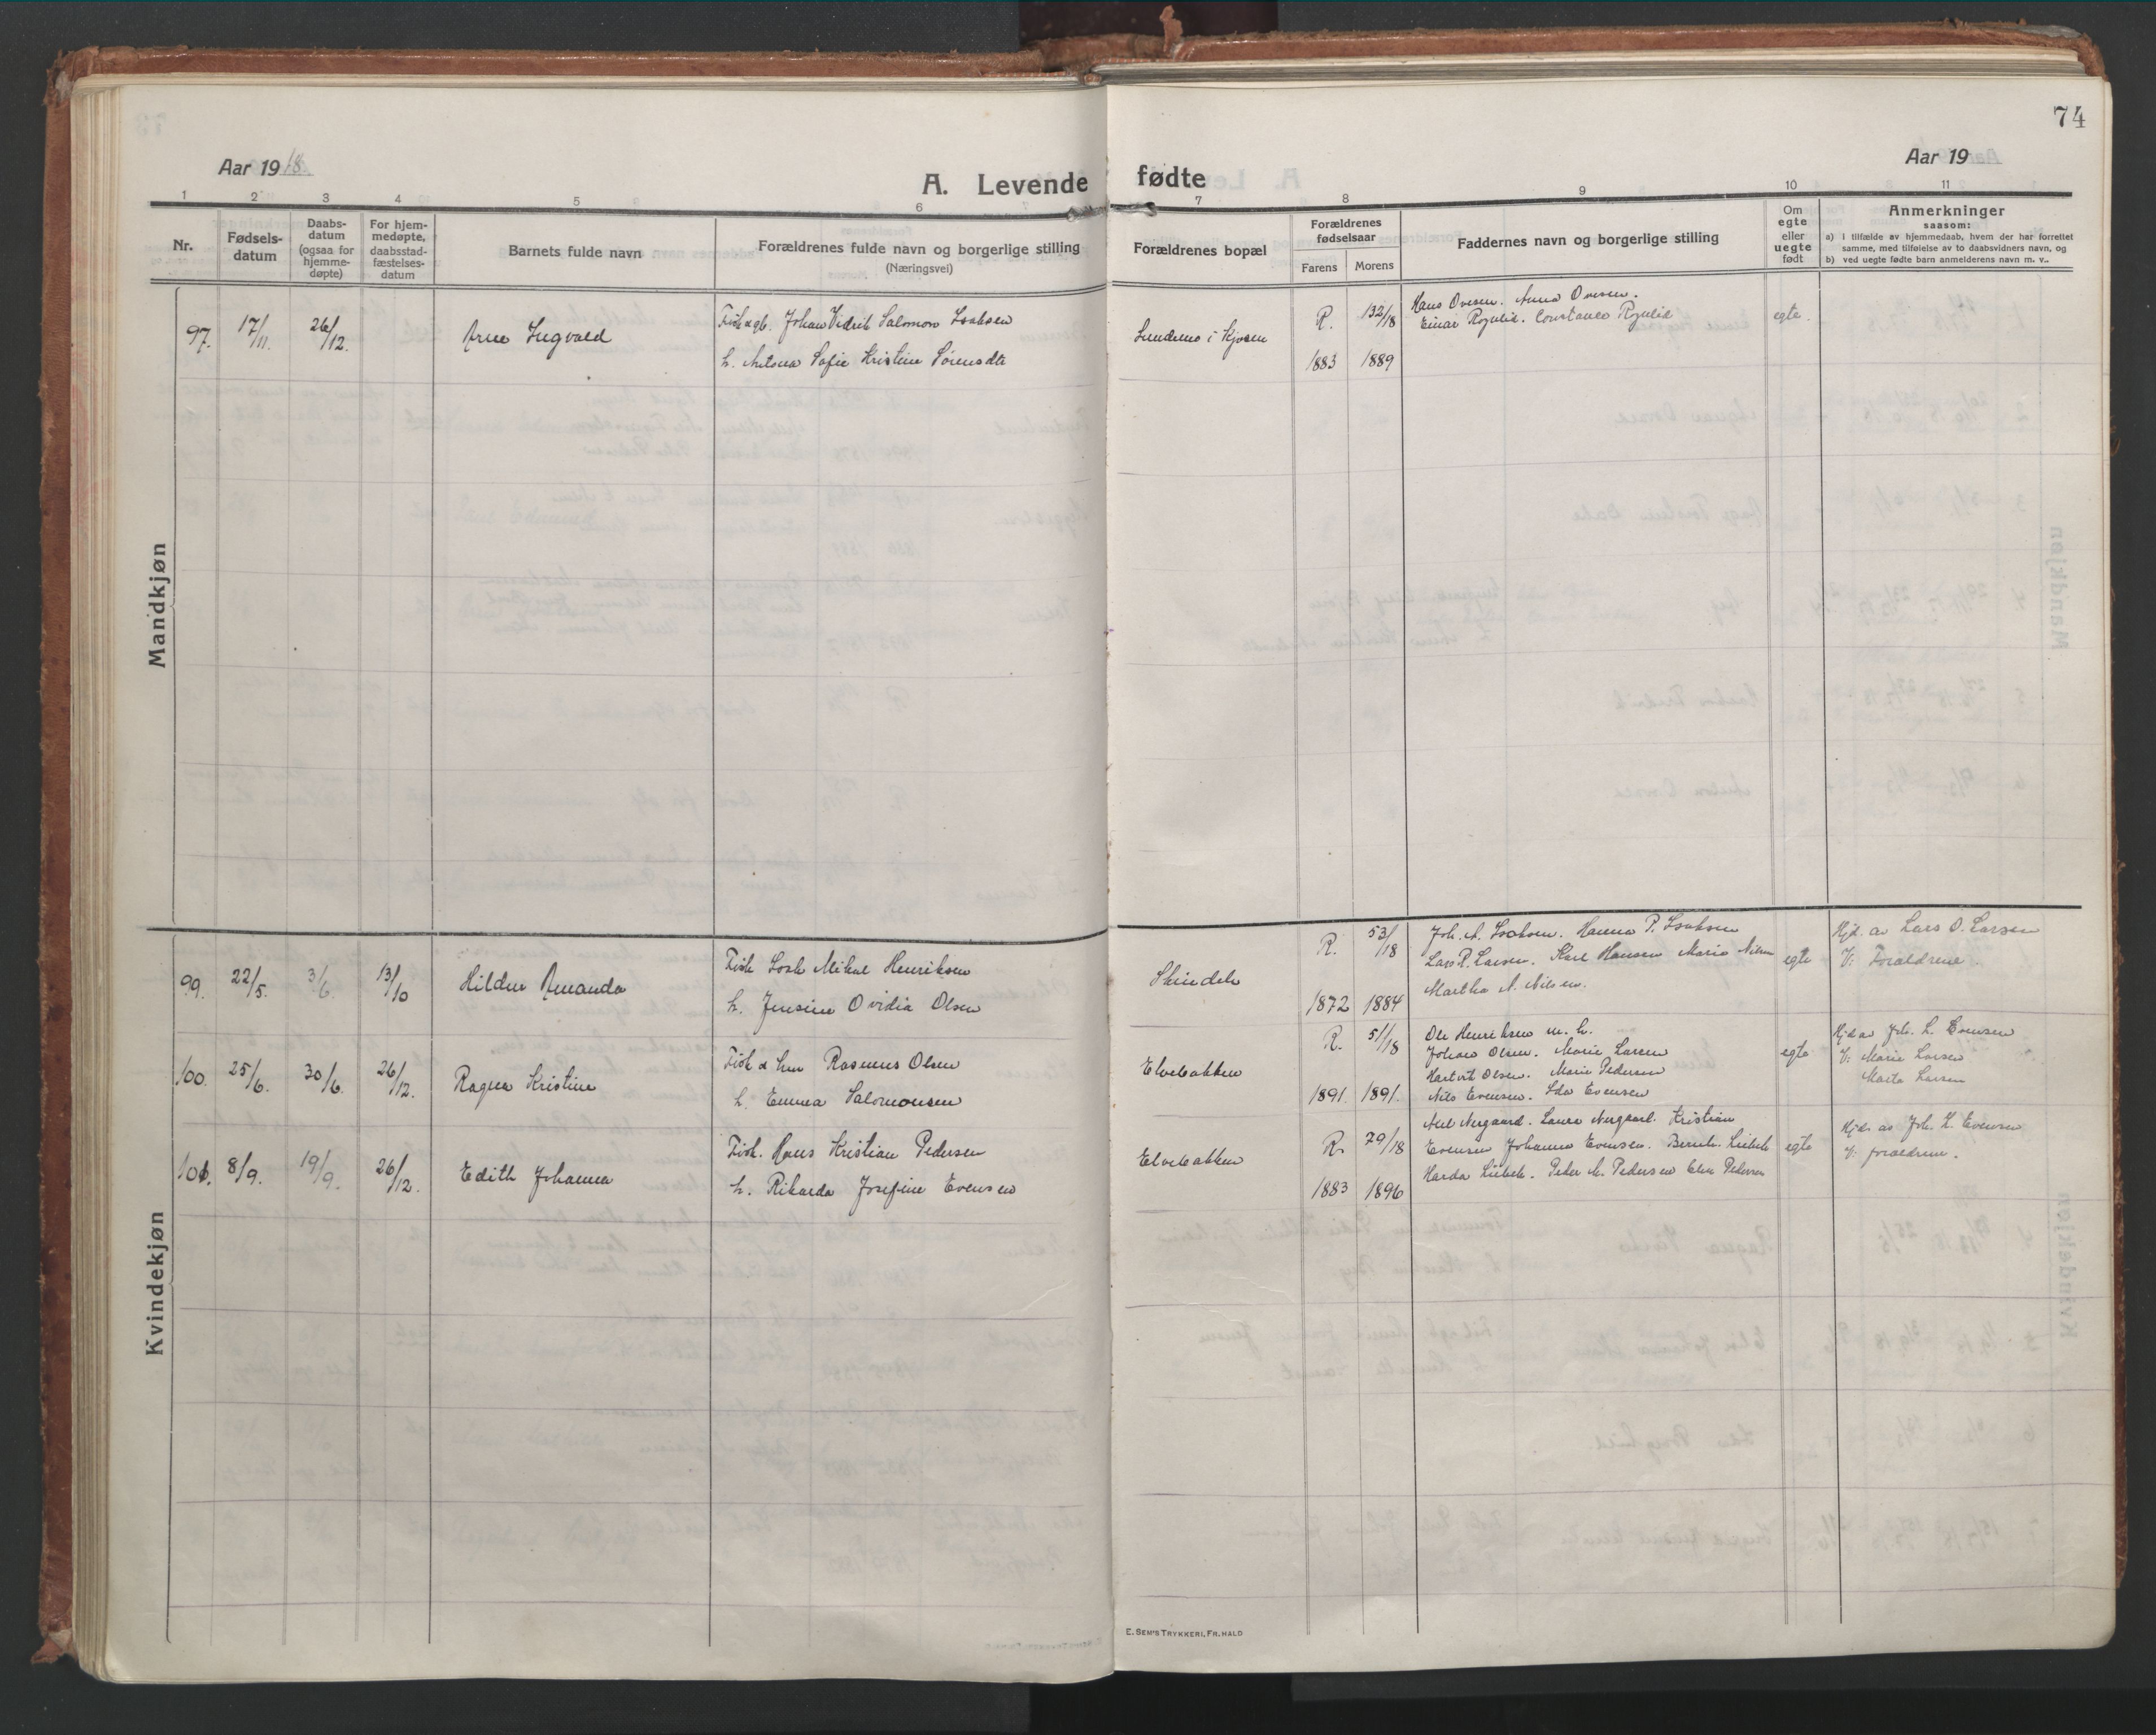 74
Aar 1918.
A. Levende fødte
Aar 19
1 2 3 4 5 6 7 8 9 10 11
Nr.
Fødsels-
datum
Daabs-
datum
(ogsaa for
hjemme-
døpte)
For hjem-
medøpte,
daabsstad-
fæstelses-
datum
Barnets fulde navn
Forældrenes fulde navn og borgerlige stilling
(Næringsvei)
Forældrenes bopæl
Forældrenes
fødselsaar
Farens
Morens
Faddernes navn og borgerlige stilling
Om
egte
eller
uegte
født
Anmerkninger
saasom:
a) i tilfælde av hjemmedaab, hvem der har forrettet
samme, med tilføielse av to daabsvidners navn, og
b) ved uegte fødte barn anmelderens navn m. v..
Mandkjøn
97. 17/11. 26/12.
Arne Ingvald
Johan Vidrik Salomon Isaksen
h. Antona Sofie Kristine Sørensdtr
i Kjosen
R. 132/18
1883 1889
Hans Ovesen. Anna Ovesen.
Einar Rognlid. Constance Rognlid
egte.
Kvindekjøn
99. 22/5. 3/6. 13/10
Hildur Amanda
Fisk Isak Mikal Henriksen
h. Jensine Ovidia Olsen
Skindelv
R. 53/18
1872 1884
Joh. A. Isaksen. Hanna P. Isaksen
Lars P. Larsen. Karl Hansen Marie Nilsen
Martha A. Nilsen.
egte
Hjd. av Lars O. Larsen
V: Forældrene.
100. 25/6. 30/6. 26/12.
Ragna Kristine
Rasmus Olsen
h. Emma Salomonsen
Elvebakken
R. 51/18
1891. 1891.
Ole Henriksen m. h.
Johan Olsen. Marie Larsen
Hartvik Olsen. Marie Pedersen
Nils Evensen. Ida Evensen
egte
Hjd av Joh. L. Evensen
V: Marie Larsen
Marta Larsen
101. 8/9. 19/9. 26/12.
Edith Johanna
Fisk. Hans Kristian Pedersen
h. Rikarda Josefine Evensen
Elvebakken
R. 79/18
1883 1896
Nergaard. Laura Nergaard. Kristian
Evensen Johanna Evensen. Bernh. Lübeck
Harda Lübeck. Peder A. Pedersen Elen Pedersen
egte
Hjd. av Joh. L. Evensen
V: forældrene.
E. SEM'S TRYKKERI, FR. HALD